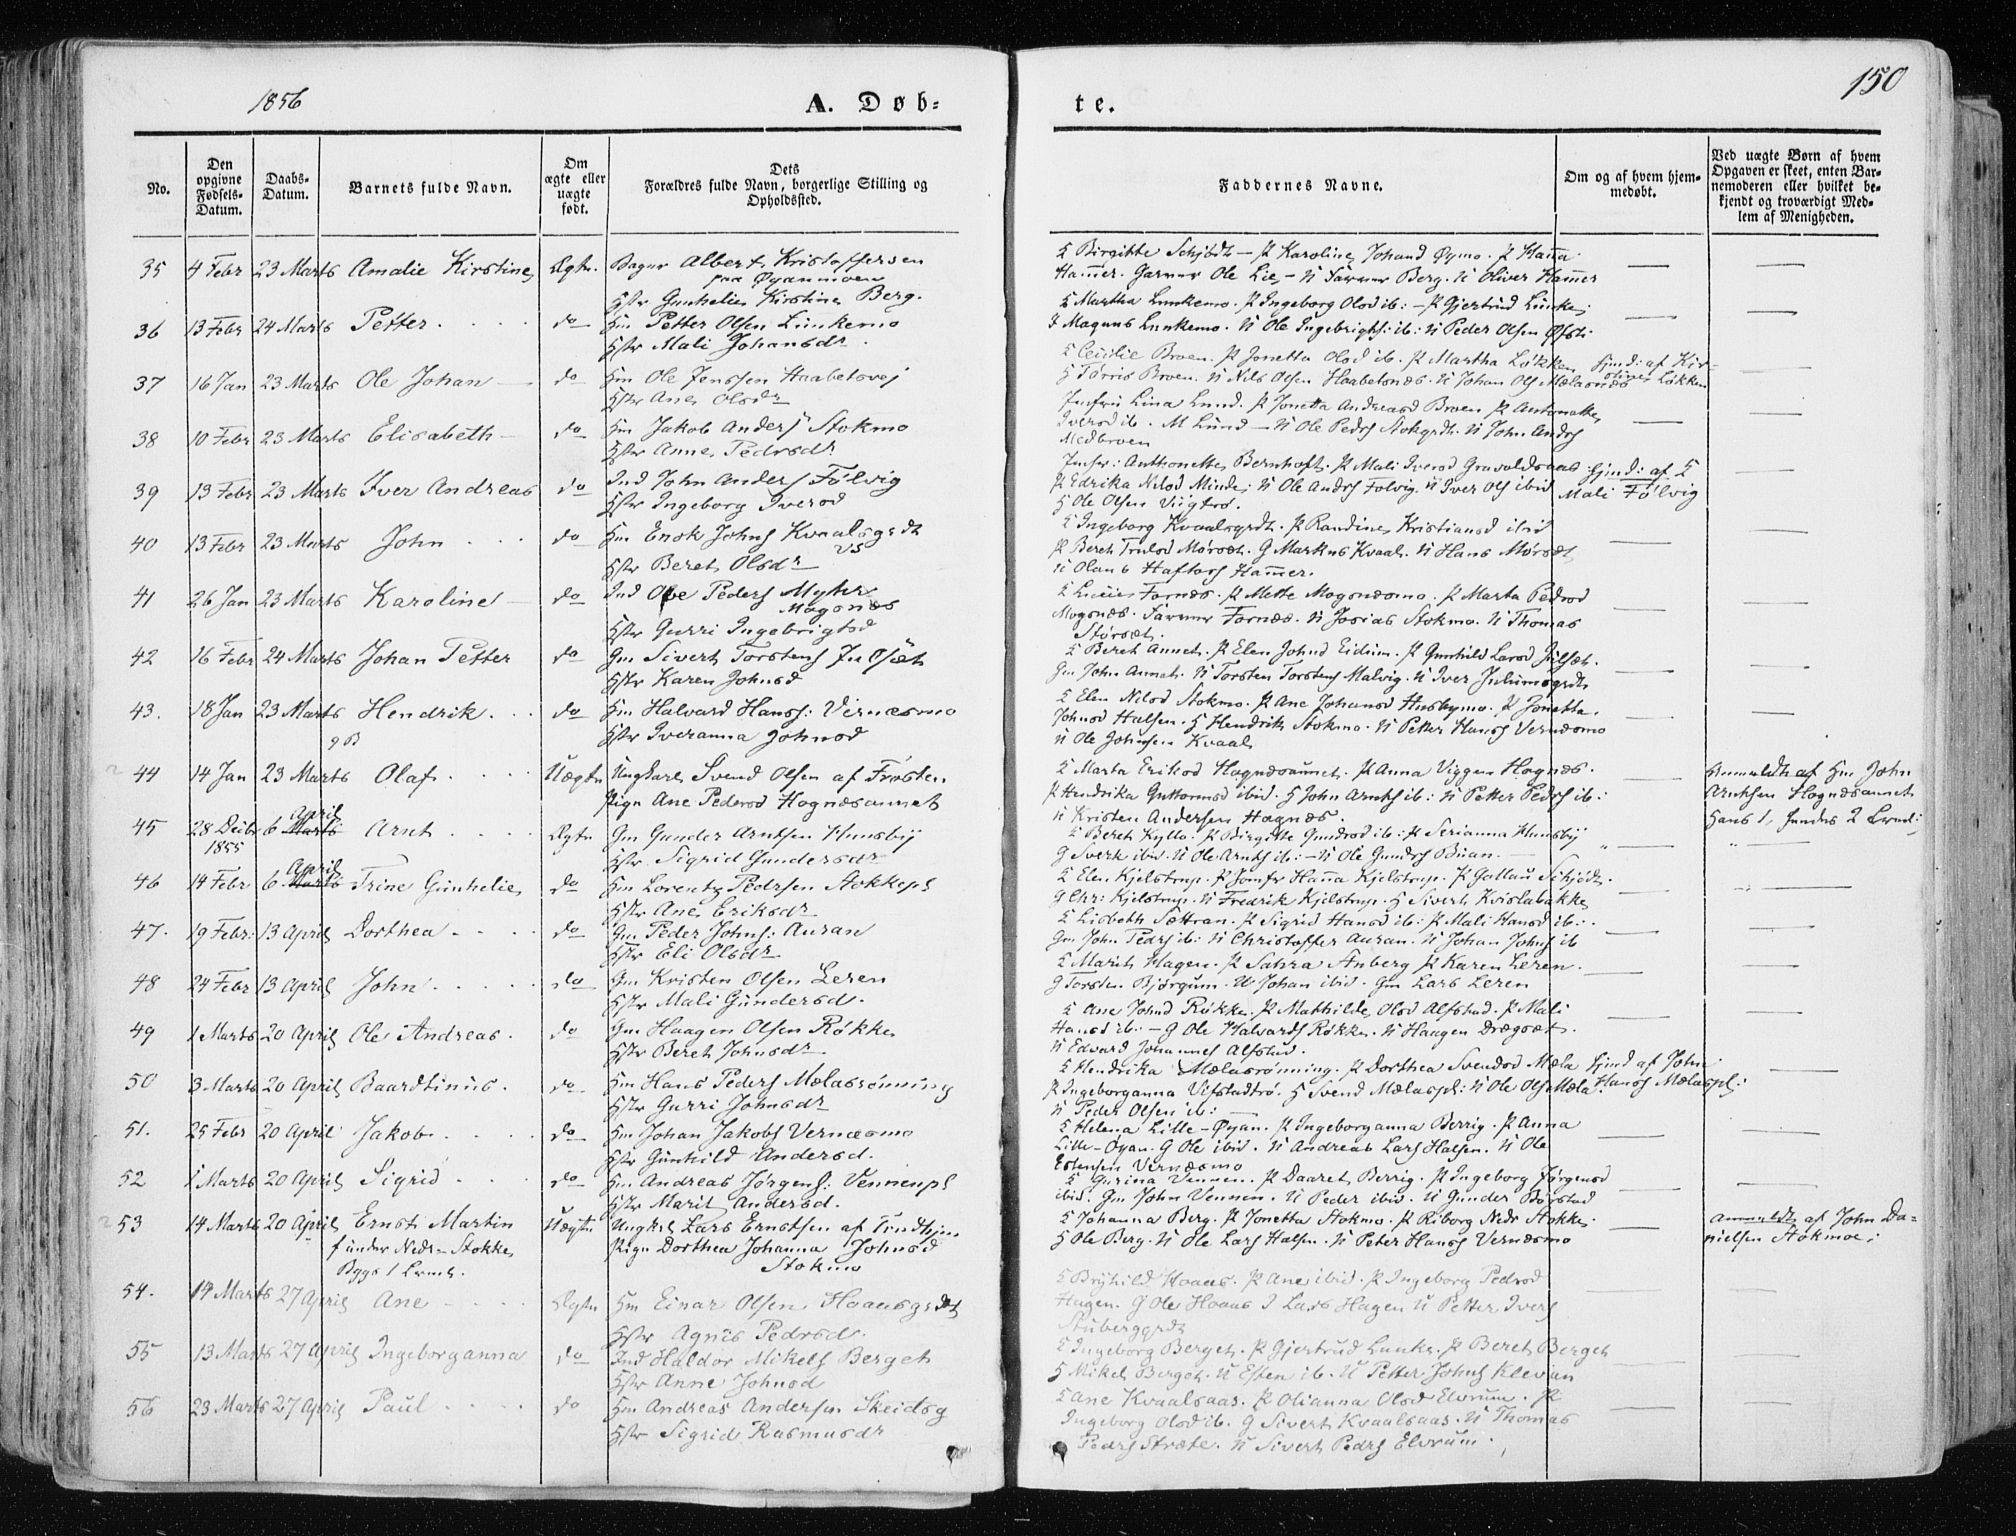 1856
A. Døb=
te.
150
No.
Den opgivne Fødsels-Datum.
Daabs-Datum.
Barnets fulde Navn.
Om ægte eller uægte født.
Dets Forældres fulde Navn, borgerlige Stilling og Opholdssted.
Faddernes Navne.
Om og af hvem hjem-medøbt.
Ved uægte Børn af hvem Opgaven er skeet, enten Bar-nemoderen eller hvilket be-kjendt og troværdigt Med-lem af Menigheden.
35 4 Febr 23 Marts Amalie Kirstine Ægte. Bager Albert Kristoffersen
paa Øyanmoen
Hstr Gunhelie Kirstine Berg.
Birgitte Schjødt - P Karoline Johand Øymo. P Hanna
Hammer. Garver Ole Lie - U Farver Berg. U Oliver Hammer
36 13 Febr 24 Marts Petter. do Hm Petter Olsen Lunkemo
Hstr Mali Johansdr
Martha Lunkemo. P Ingeborg Olsd ib: - P Gjertrud Lunke
Magnus Lunkemo. U Ole Ingebrigts: ib: U Peder Olsen Øfsti
37 16 Jan 23 Marts Ole Johan do Hm Ole Jenssen Haabetsvej
Hstr Ane Olsdr
Cecilie Broen. P Jonetta Olsd ib. P Martha Løkken
Tørris Broen. U Nils Olsen Haabetsnes. U Johan Ols Mælasnes
Hjmd: af Kir-
stine Løkken
38 10 Febr 23 Marts Elisabeth do Hm Jakob Anders Stokmo
Hstr Anne Pedrsdr
Jmfru Lina Lund. P Jonetta Andreasd Broen P Antonette
Iversd ib. M Lund - U Ole Pedrs Stokgrdt. U John Andrs
Medbroen
39 13 Febr 23 Marts Iver Andreas do Ind John Anders Følvig
Hstr Ingeborg Iversd
Jmfr: Anthonette Bernhoft. P Mali Iversd Gravaldsaas
P Edrika Nilsd Minde; U Ole Andrs Følvig. U Iver Ols ibid
Ole Olsen Viigtrø.
Hjmd: af
Mali Følvig
40 13 Febr 23 Marts John do Hm Enok Johns Kvaalsgrdt
VS
Hstr Beret Olsdr
Ingeborg Kvaalsgrdt. P Randine Kristiansd ibid
P Beret Trulsd Mørset. G Markus Kvaal. U Hans Mørset
U Olaus Haftors Hammer.
41 26 Jan 23 Marts Karoline do Ind Ole Peders Myhr
Mogsnes
Hstr Gurri Ingebrigtsd
Fornes. P Mette Mogsnesmo. P Marta Pedrsd
Mogsnes. Farver Fornes. U Josias Stokmo. U Thomas
Størset.
42 16 Febr 24 Marts Johan Petter do Gm Sivert Torstens Julset
Hstr Karen Johnsd
Beret Annet. P Elen Johnsd Eidum. P Gunhild Larsd Julset.
Gm John Annet. U Torsten Torstens Malvig. U Iver Julumsgrdt
43. 18 Jan 23 Marts Hendrik. do Hm Halvard Hanss: Vernæsmo
Hstr Iveranna Johnsd
Elen Nilsd Stokmo. P Ane Johansd Husbymo. P Jonetta
Johnsd Halsen. Hendrik Stokmo. U Petter Hanss Vernæsmo
U Ole Johnsen Kvaal
44 14 Jan 23 Marts Olaf Uægte Ungkarl Svend Olsen af Frosten
Pige Ane Pedersd Hognesaunet
Marta Eriksd Hognesaunet. P Anna Viggen Hognes.
P Hendrika Guttormsd ibid. John Arnts ib: U Petter Pedrs ib:
U Kristen Andersen Hognes.
Anmeldt af Hm John
Arntsen Hognesaunet
Hans 1, hendes 2 Lrmd;
45 28 Decbr 1855 6 April Marts Arnt Ægte Gm Gunder Arntsen Hunsbij
Hstr Sigrid Gundersdr
Beret Kyllo: P Birgitte Gundrsd ib: P Serianna Hunsbij
G Sverk ibid. U Ole Arnts ib: - U Ole Gundrs Buan.
46 14 Febr 6 April Marts Trine Gunhelie do Hm Lorentz Pedrsen Stokkepl
Hstr Ane Eriksdr
Elen Kjelstrup. P Jomfr Hanna Kjelstrup. P Schjødt.
G Chr: Kjelstrup. U Fredrik Kjelstrup. Sivert Kvislabakke
47. 19 Febr: 13 April Dorthea do Gm Peder Johns: Auran
Hstr Eli Olsdr
Lisbeth Sættran. P Sigrid Hansd ib: P Mali Hansd ib:
Gm John Pedrs ib: U Christoffer Auran. U Johan Johns ib
48 24 Febr 13 April John do Gm Kristen Olsen Leren
Hstr Mali Gundersd.
Marit Hagen. P Sahra Anberg P Karen Leren.
G Torsten Bjørgum. U Johan ibid. Gm Lars Leren
49 1 Marts 20 April Ole Andreas. do Gm Haagen Olsen Røkke
Hstr Beret Johnsdr
Ane Johnsd Røkke. P Mathilde Olsd Alfstad. P Mali
Hansd ib: - G Ole Halvards Røkke. U Haagen Drægset.
U Edvard Johannes Alfstad.
50 3 Marts 20 April Baardtinus. do Hm Hans Peders Mælasrønning
Hstr Gurri Johnsdr
Hendrika Mælasrønning. P Dorthea Svendsd Mæla
P Ingeborganna Vifstadtrø. Svend Mælaspl: U Ole Ols Mæla
U Peder Olsen ib:
Hjmd af John
Hanss Mælaspl:
51. 25 Febr 20 April Jakob do Hm Johan Jakobs Vernæsmo
Hstr Gunhild Andersd.
Helena Lille-Øyan. P Ingeborganna Berrig. P Anna
Lille-Øyan. G Ole ibid. U Andreas Lars Halsen. U Ole
Estensen Vernæsmo
52 1 Marts 20 April Sigrid do Hm Andreas Jørgens: Vennenpl
Hstr Marit Andersd.
Gurina Vennen. P Daaret Berrig. P Ingeborg Jørgensd
ibid. Gm John Vennen. U Peder ibid. U Gunder Børstad
53 14 Marts 20 April Ernst Martin Uægte Ungkrl Lars Ernstsen af Trndhjm
f under Nedr-Stokke
Bygs 1 Lrmd.
Pige Dorthea Johanna Johnsd
Stokmo
Johanna Berg. P Jonetta Stokmo. P Riborg Nedr Stokke.
Ole Berg. U Ole Lars Halsen. U Peter Hanss Vernæsmo
anmeldt af John Da-
nielsen Stokmoe;
54. 14 Marts 27 April Ane Ægte Hm Einar Olsen Hoaasgrdet
Hstr Agnis Pedrsd.
Brynhild Hoaas. P Ane ibid. P Ingeborg Pedrsd
Hagen. G Ole Hoaas I Lars Hagen U Petter Ivers
Stubergrdt
55 13 Marts 27 April Ingeborganna do Ind Haldor Mikels Berget
Hstr Anne Johnsd
Ingeborg Berget. P Gjertrud Lunke. P Beret Berget
Mikel Berget. U Esten ib. U Petter Johns Klevan
56 23 Marts 27 April Paul do Hm Andreas Andersen Skeidsg
Hstr Sigrid Rasmusdr
Ane Kvaalsaas. P Olianna Olsd Elvrum. P
Ingeborg Olsd ib. G Sivert Kvaalsaas. U Thomas
Pedrs Stræte. U Sivert Pedrs Elvrum.